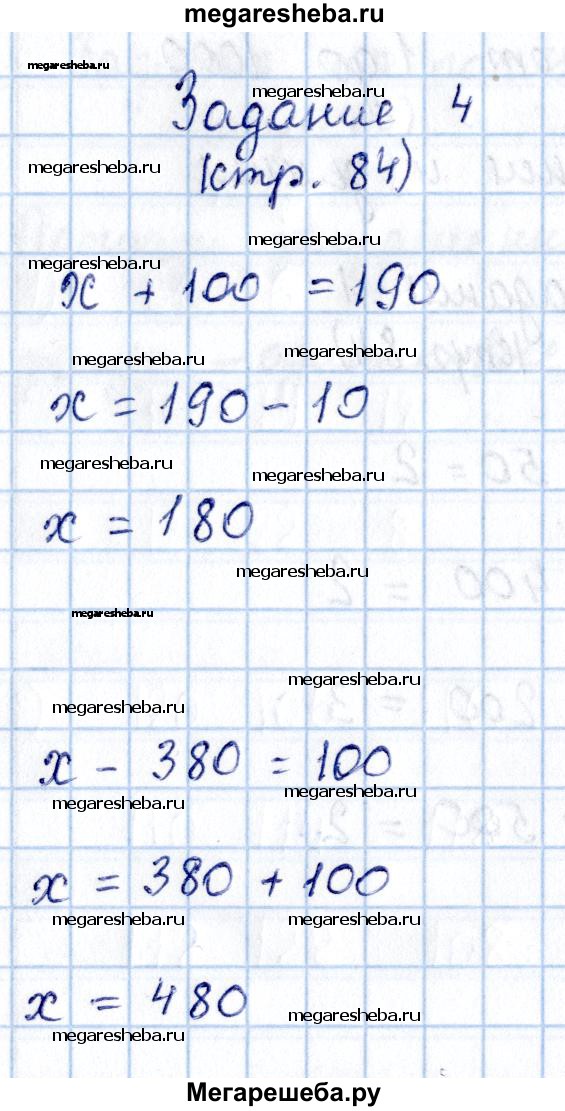 megaresheba.ru
megaresheba.ru
megaresheba.ru
Задание 4
megaresheba.ru
(стр. 84)
megaresheba.ru
megaresheba.ru
x + 100 = 190
megaresheba.ru
megaresheba.ru
x = 190 - 10
megaresheba.ru
megaresheba.ru
x = 180
megaresheba.ru
megaresheba.ru
megaresheba.ru
megaresheba.ru
x - 380 = 100
megaresheba.ru
megaresheba.ru
x = 380 + 100
megaresheba.ru
megaresheba.ru
x = 480
megaresheba.ru
megaresheba.ru
Мегарешеба.ру